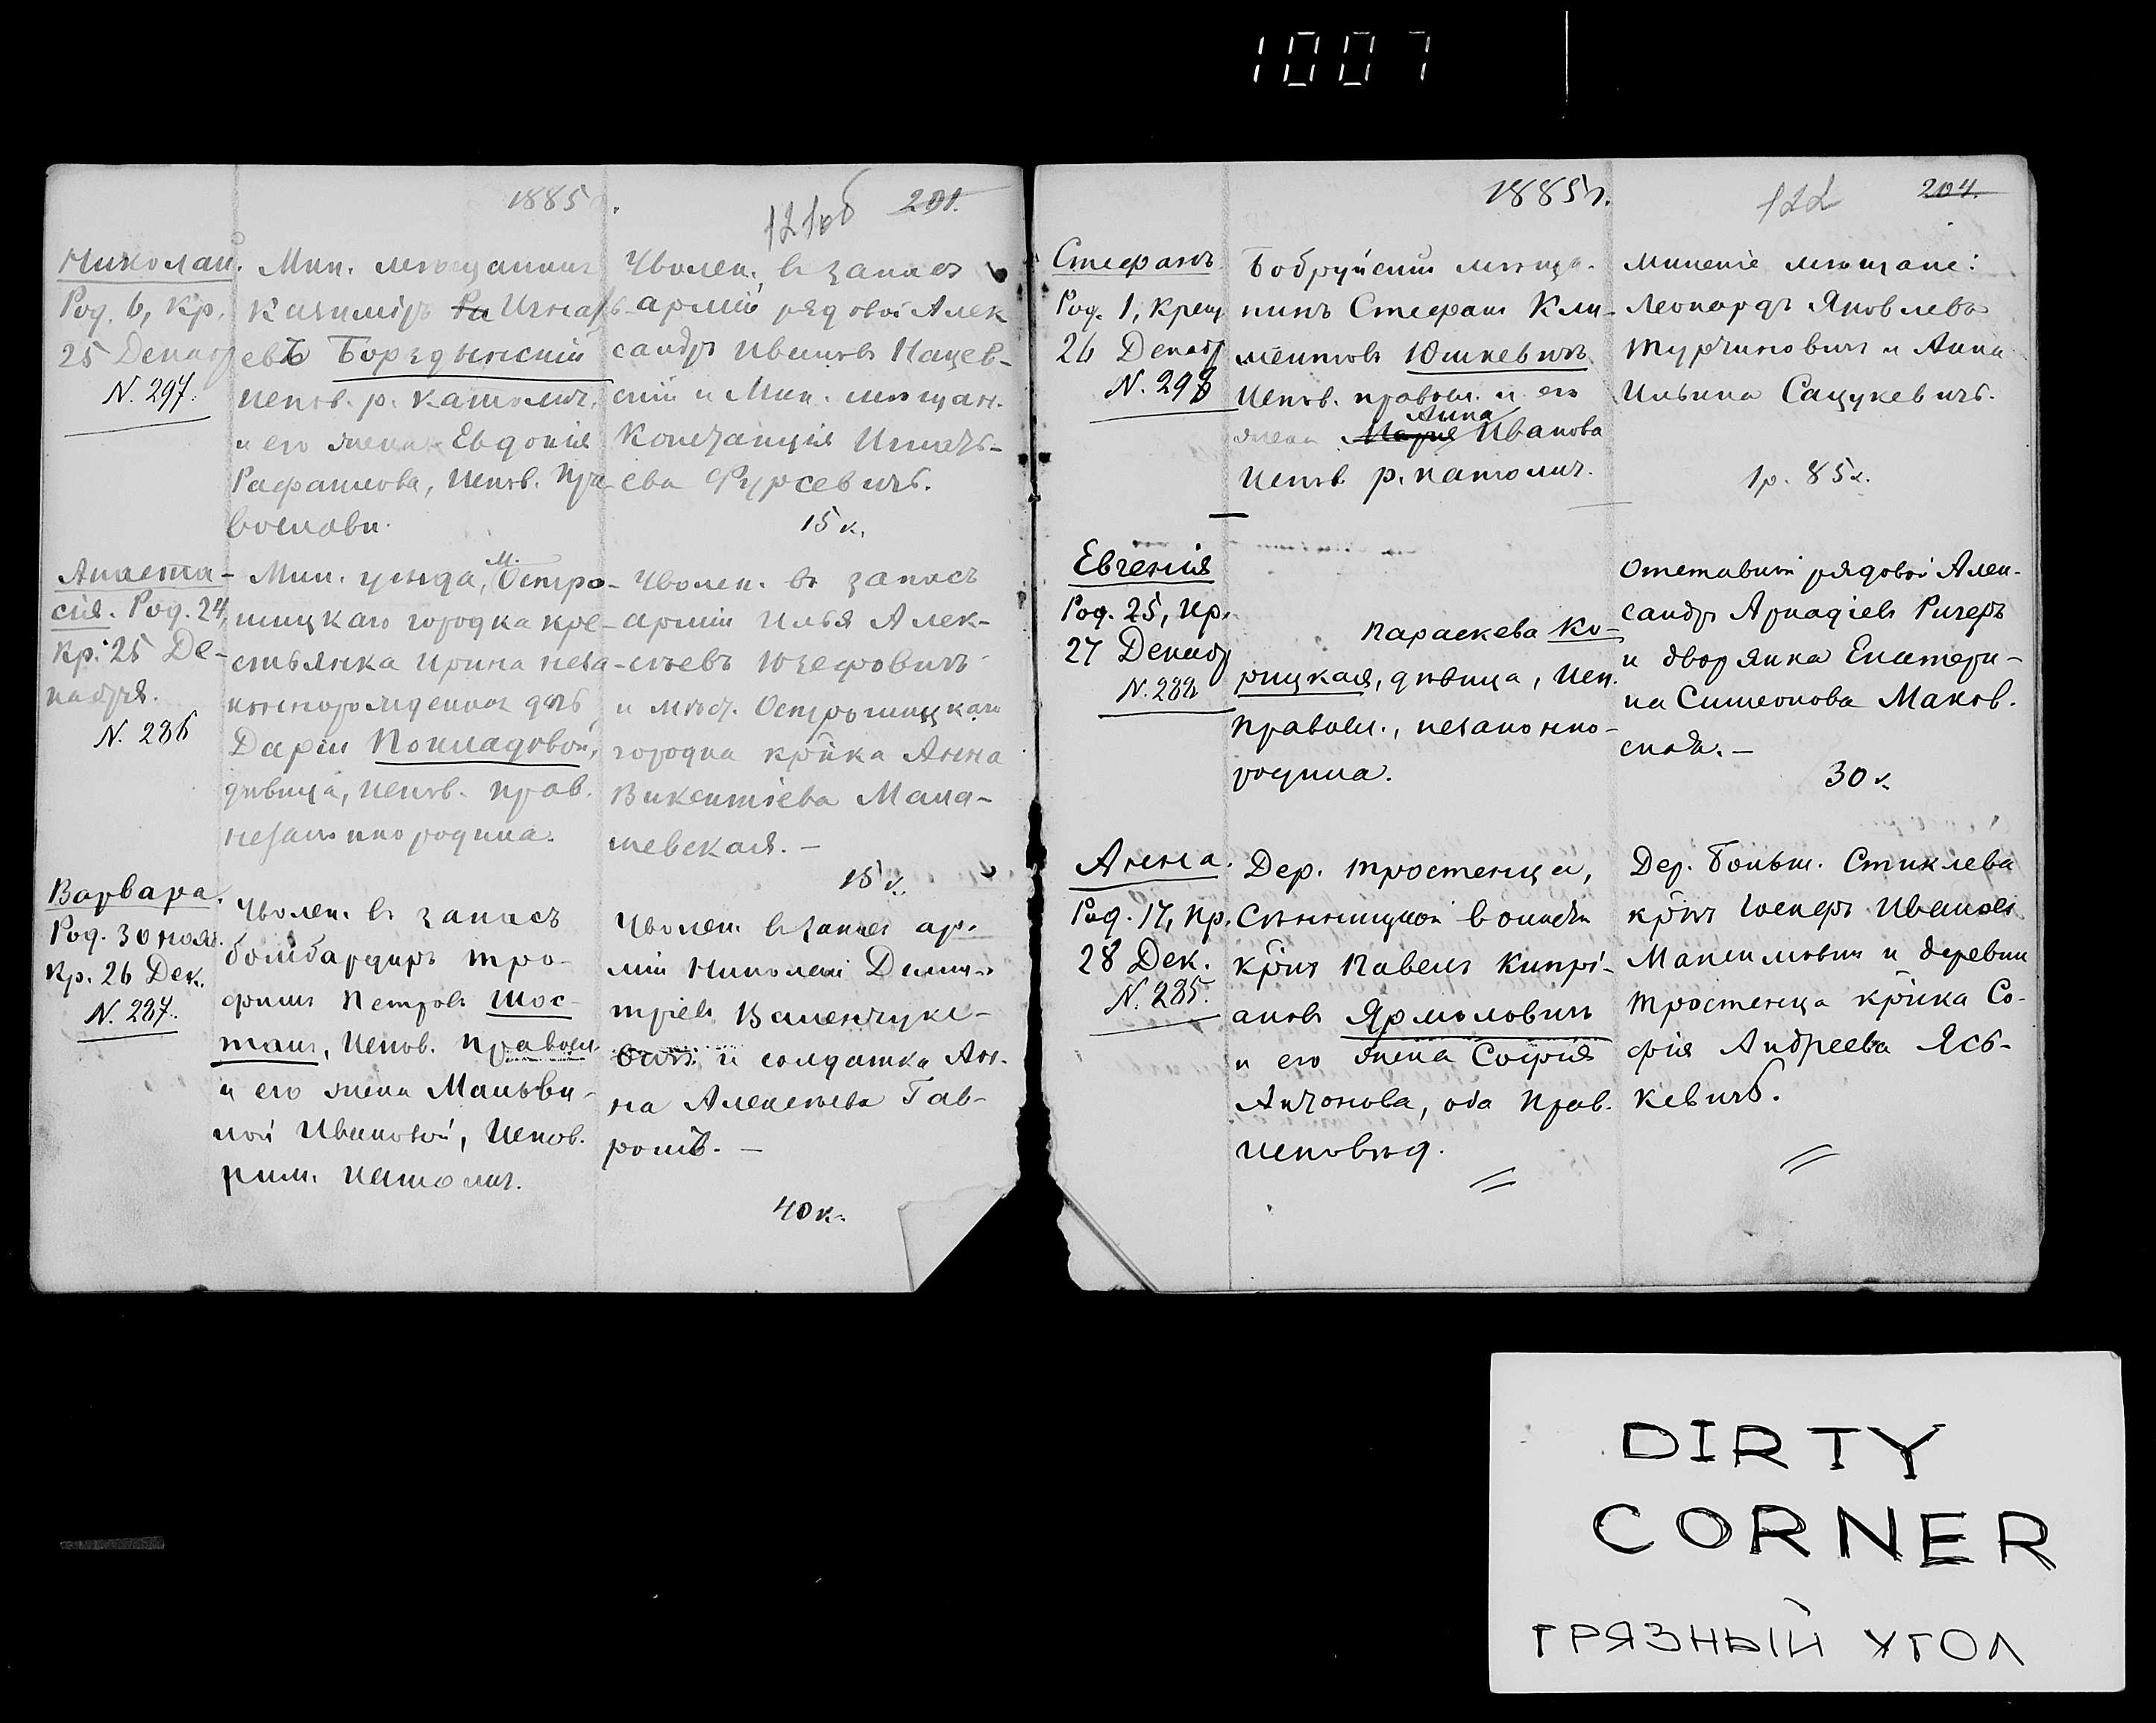 1007
1885
121об 201.
Николай.
Род. 6, Кр.
25 Декабр
N. 297.
Мин. мѣщанинъ
Казиміръ Игнать
евъ Борздынскій
испов. р. католич.
и его жена Евдокія
Рафаилова, испов. пра
вославн.
Уволен. въ запасъ
арміи рядовой Алек
сандръ Ивановъ Нацев-
скій и Мин. мѣщан.
Констанція Игнать-
ева Фурсевичъ.
15 к.
Анаста-
сія. Род. 24,
Кр. 25 Де-
кабря.
N. 286
Мин. уѣзда, м. Остро-
шицкаго городка кре-
стьянка Ирина неза
коннорожденная дчь
Даріи Покладовой,
дѣвица, испов. прав.
незаконнородила.
Уволен. въ запасъ
арміи Илья Алек-
сѣевъ Юзефовичъ
и мѣст. Острошицкаго
городка кр̃нка Анна
Викентіева Мала-
шевская. –
15 к.
Варвара.
Род. 30 нояб.
Кр. 26 Дек.
N. 287.
Уволен. въ запасъ
бомбардиръ Тро-
фимъ Петровъ Шос-
такъ, испов. правосл.
и его жена Мальви-
ной Ивановой, испов.
рим. католич.
Уволен. въ запасъ ар-
міи Николай Димит-
тріевъ Валенчуке-
вичъ и солдатка Ан-
на Алексѣева Гав-
рошъ. –
40 к.
1885 г.
122 204.
Стефанъ
Род. 1, Крещ
26 Декабр
N. 298
Бобруйскій мѣща-
нинъ Стефанъ Кли-
ментовъ Юшкевичъ
испов. правосл. и его
жена Марія Анна Иванова
испов. р. католич.
Минскіе мѣщане:
Леонардъ Яковлевъ
Турчиновичъ и Анна
Ильина Сацукевичъ.
1р. 85к.
Евгенія
Род. 25, Кр.
27 Декабр
N. 288
Параскева Ко-
рицкая, дѣвица, исп.
правосл., незаконно-
родила.
Отставной рядовой Алек-
сандръ Аркадіевъ Ричеръ
и дворянка Екатери-
на Симеонова Маков-
ская. –
30 к.
Анна.
Род. 17, Кр.
28 Дек.
N. 285.
Дер. Тростенца,
Сѣнницкой волости
кр̃нъ Павелъ Кипрі-
ановъ Ярмоловичъ
и его жена Софія
Антонова, оба прав.
исповѣд.
Дер. Больш. Стиклева
кр̃нъ Іосифъ Ивановъ
Максимовичъ и деревни
Тростенца кр̃нка Со-
фія Андреева Ясь-
кевичъ.
DIRTY
CORNER
ГРЯЗНЫЙ УГОЛ